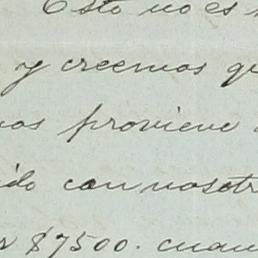 Esto no es
y creemos qu
nos proviene
ido con nosotr
$7500. cuan